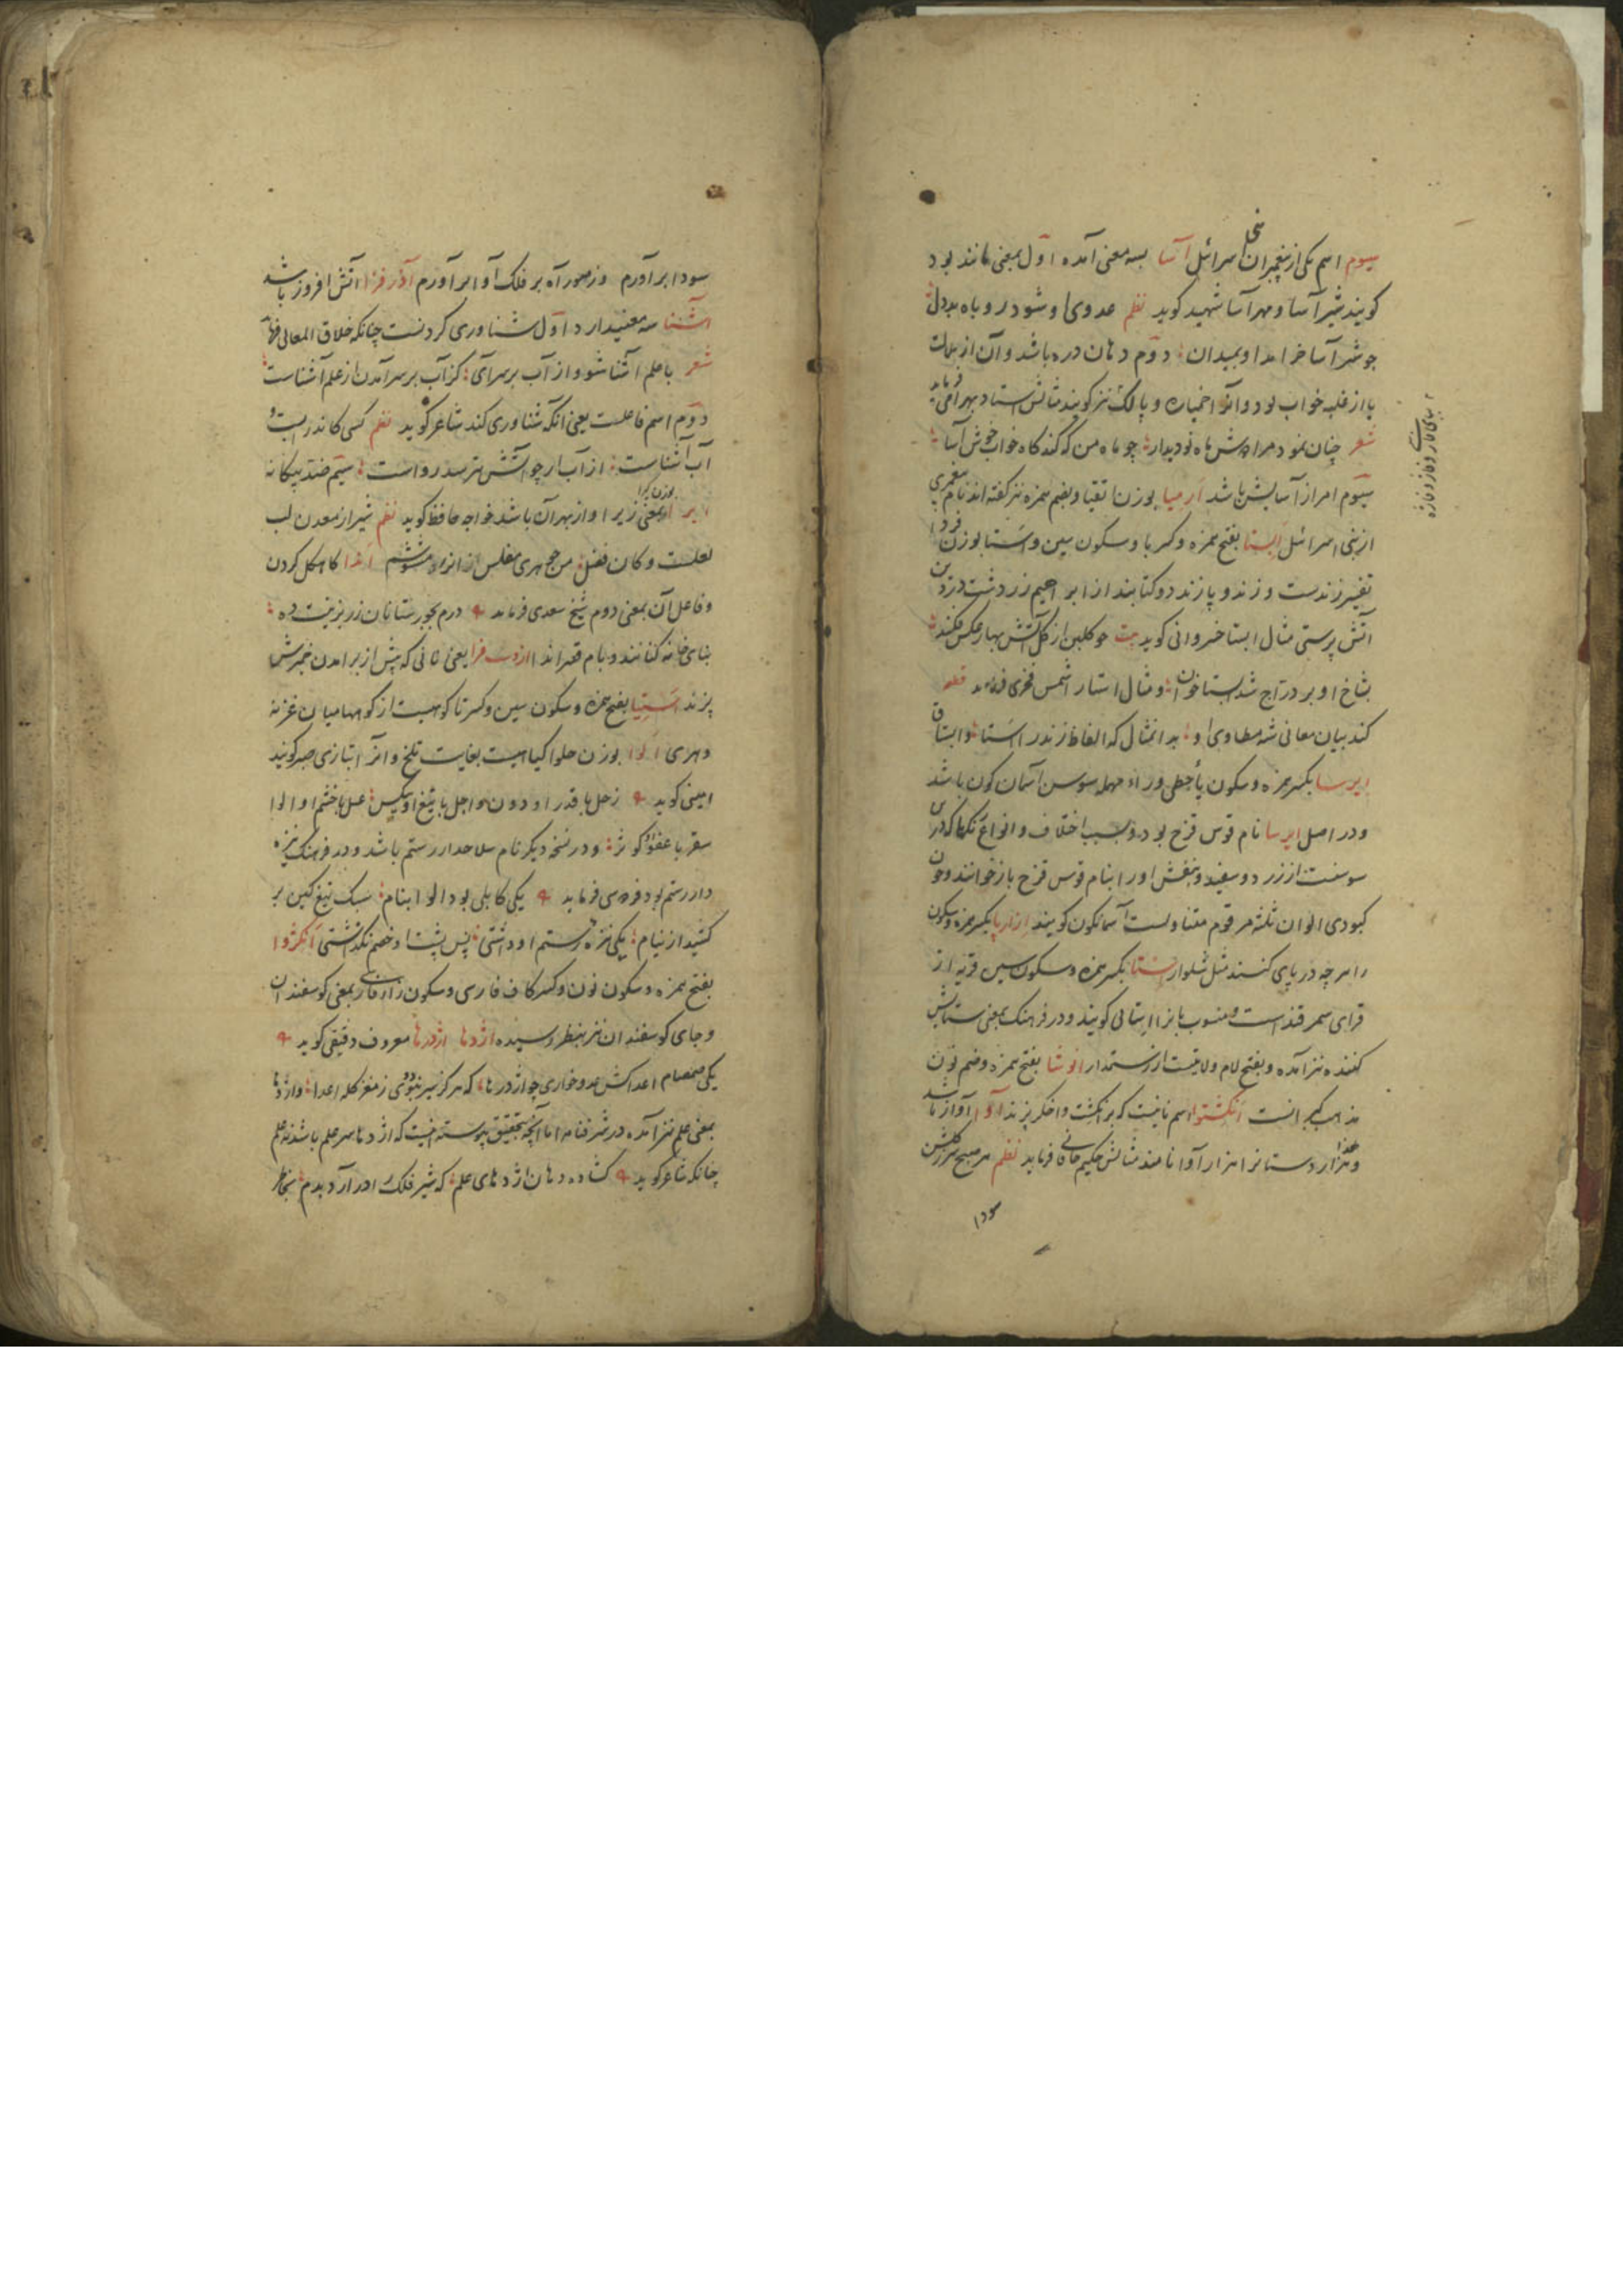 سیوم اسم یکی از پیغمبران بنی اسرائیل آسا بسه معنی آمده اوّل بمعنی مانند بود
کویند شیر آسا و مهر آسا شهید کوید نظم عدوی او شود روباه بددل
چو شیر آسا خرامد او بمیدان دوّم دهان دره باشد و آن از ملالت
یا از غلبه خواب بود و آنرا خمیازه و پالک نیز کویند مثالش استاد بهرامی فرماید
شعر چنان نمود مرا دوش ماه نو دیدار چو ماه من که کند کاه خواب خوش آسا
سیوّم امر از آسایش باشد ارمیا بوزن اتقیا و بضم همزه نیز کفته اند نام پیغمبری
از بنی اسرائیل اَبِستا بفتح همزه و کسر با و سکون سین و اَستا بوزن فردا
تفسیر زندست و زند و پازند دو کتابند از ابراهیم زردشت در دین
آتش پرستی مثال ابستا خسروانی کوید بیت چو کلبن از کل آتش نهاد عکس فکند
بشاخ او بر درّاج شد ابستا خوان و مثال استا را شمس فخری فرماید قطعه
کند بیان معانی شه مطاوی او بدانمثال که الفاظ زند را اَستا و ابستاق
ایرسا بکسر همزه و سکون یاء حطی و راء مهمله سوسن آسمان کون باشد
و در اصل ایرسا نام قوس قزح بود و بسبب اختلاف و انواع رنکها که در این
سوسنست از زرد و سفید و بنفش او را بنام قوس قزح باز خوانند و چون
کبودی الوان ثلثه مرقوم متناولست آسمانکون کویند ازارپا بکسر همزه و سکون
را هرچه در پای کنند مثل شلوار اِستا بکسر همزه و سکون سین قریه از
قرای سمرقند است و منسوب بانرا استائی کویند و در فرهنک بمعنی ستایش
کننده نیز آمده و بفتح لام ولایتیست از رستمدار انوشا بفتح همزه و ضم نون
مذهب کبرانست اَنکِشتوا اسم نانیست که بر انکشت و اخکر پزند آوا آواز باشد
و هزار دستانرا هزار آوا نامند مثالش حکیم خاقانی فرماید نظم هر صبح سر ز کلشن
سودا
سودا برآورم وز صور آه بر فلک آوا برآورم آذر فزا آتش افروز باشد
آشنا سه معنیدارد اوّل شناوری کردنست چنانکه خلاق المعانی فرماید
شعر با علم آشنا شو و از آب برسر آی کز آب برسر آمدن از علم آشناست
دوّم اسم فاعلست یعنی انکه شناوری کند شاعر کوید نظم کسی کاندر آبست و
آب آشناست از آب ار چو آتش بترسد رواست سیّم ضد بیکانه
ایرا بوزن کیرا بمعنی زیرا و از بهر آن باشد خواجه حافظ کوید نظم شیراز معدن لب
لعلست و کان فضل من جوهری مفلس از انرو مشوشم کاهکل کردن
و فاعل آن بمعنی دوم شیخ سعدی فرماید درم بجورستانان زر بزینت ده
بنای خانه کنانند و بام قصر اندا یعنی نانی که پیش از برامدن خمیرش
پزند اَستِیا بفتح همزه و سکون سین و کسر تا کوهیست از کوهها میان غزنه
و هری اَلوا بوزن حلوا کیاهیست بغایت تلخ و آنرا بتازی صبر کویند
امینی کوید زحل با قدر او دون و اجل با تیغ او عسل با خشم او الوا
سقر با عفو او کوثر و در نسخه دیکر نام سلاحدار رستم باشد و در فرهنک نیزه
دار رستم بود فردوسی فرماید یکی کابلی بود الوا بنام سبک تیغ کین بر
کشید از نیام یکی نیزه رستم او داشتی پس پشت او خصم نکذاشتی اَنکِژوا
بفتح همزه و سکون نون و کسر کاف فارسی و سکون زاء فارسی بمعنی کوسفندان
و جای کوسفندان نیز بنظر رسیده اژدها اژدرها معروف دقیقی کوید
یکی صمصام اعداکش عدو خواری چو اژدرها که هرکز سیر نبود وی ز مغز کله اعدا و اژدها
بمعنی علم نیز آمده در شرفنامه امّا آنچه بتحقیق پیوسته اینست که اژدها سر علم باشد نه علم
چنانکه شاعر کوید کشاده دهان اژدهای علم که شیر فلک را درآرد بدم